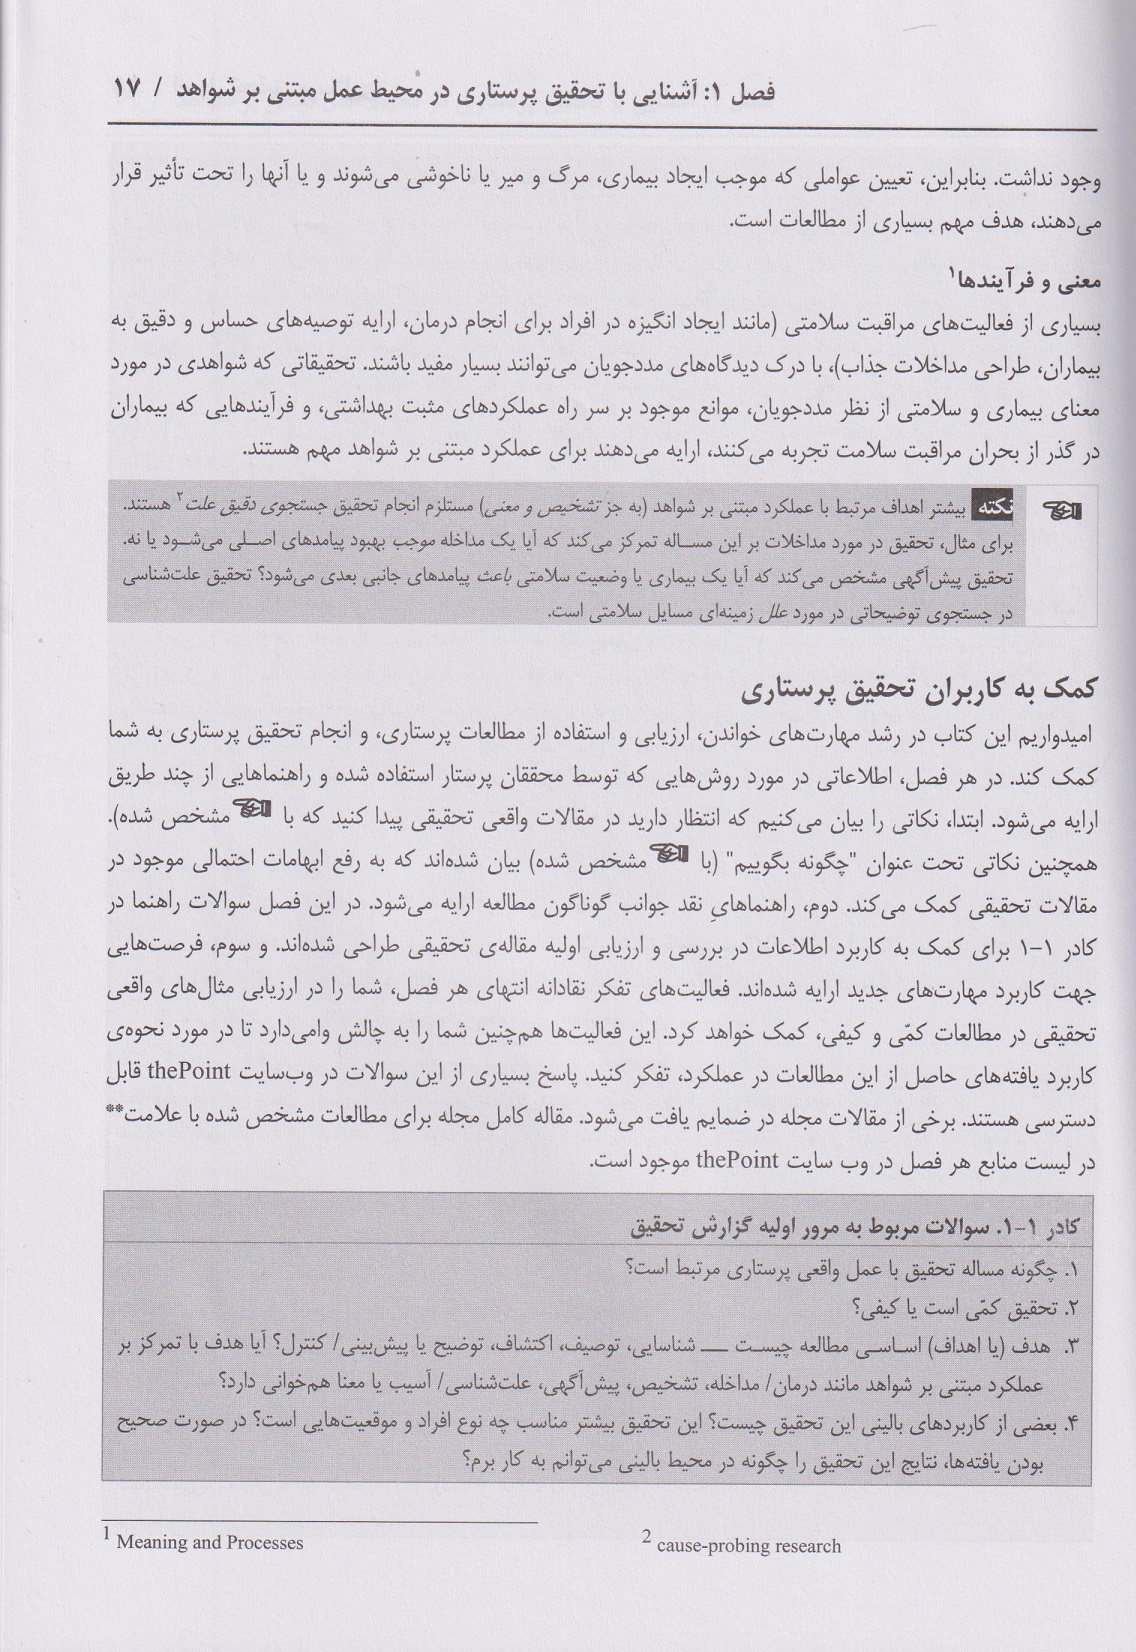 فصل ۱: آشنایی با تحقیق پرستاری در محیط عمل مبتنی بر شواهد / ۱۷
وجود نداشت. بنابراین، تعیین عواملی که موجب ایجاد بیماری، مرگ و میر یا ناخوشی می‌شوند و یا آنها را تحت تأثیر قرار
می‌دهند، هدف مهم بسیاری از مطالعات است.
معنی و فرآیندها۱
بسیاری از فعالیت‌های مراقبت سلامتی (مانند ایجاد انگیزه در افراد برای انجام درمان، ارایه توصیه‌های حساس و دقیق به
بیماران، طراحی مداخلات جذاب)، با درک دیدگاه‌های مددجویان می‌توانند بسیار مفید باشند. تحقیقاتی که شواهدی در مورد
معنای بیماری و سلامتی از نظر مددجویان، موانع موجود بر سر راه عملکردهای مثبت بهداشتی، و فرآیندهایی که بیماران
در گذر از بحران مراقبت سلامت تجربه می‌کنند، ارایه می‌دهند برای عملکرد مبتنی بر شواهد مهم هستند.
نکته بیشتر اهداف مرتبط با عملکرد مبتنی بر شواهد (به جز تشخیص و معنی) مستلزم انجام تحقیق جستجوی دقیق علت۲ هستند.
برای مثال، تحقیق در مورد مداخلات بر این مساله تمرکز می‌کند که آیا یک مداخله موجب بهبود پیامدهای اصلی می‌شود یا نه.
تحقیق پیش‌آگهی مشخص می‌کند که آیا یک بیماری یا وضعیت سلامتی باعث پیامدهای جانبی بعدی می‌شود؟ تحقیق علت‌شناسی
در جستجوی توضیحاتی در مورد علل زمینه‌ای مسایل سلامتی است.
کمک به کاربران تحقیق پرستاری
امیدواریم این کتاب در رشد مهارت‌های خواندن، ارزیابی و استفاده از مطالعات پرستاری، و انجام تحقیق پرستاری به شما
کمک کند. در هر فصل، اطلاعاتی در مورد روش‌هایی که توسط محققان پرستار استفاده شده و راهنماهایی از چند طریق
ارایه می‌شود. ابتدا، نکاتی را بیان می‌کنیم که انتظار دارید در مقالات واقعی تحقیقی پیدا کنید که با مشخص شده).
همچنین نکاتی تحت عنوان "چگونه بگوییم" (با مشخص شده) بیان شده‌اند که به رفع ابهامات احتمالی موجود در
مقالات تحقیقی کمک می‌کند. دوم، راهنماهایِ نقد جوانب گوناگون مطالعه ارایه می‌شود. در این فصل سوالات راهنما در
کادر ۱-۱ برای کمک به کاربرد اطلاعات در بررسی و ارزیابی اولیه مقاله‌ی تحقیقی طراحی شده‌اند. و سوم، فرصت‌هایی
جهت کاربرد مهارت‌های جدید ارایه شده‌اند. فعالیت‌های تفکر نقادانه انتهای هر فصل، شما را در ارزیابی مثال‌های واقعی
تحقیقی در مطالعات کمّی و کیفی، کمک خواهد کرد. این فعالیت‌ها هم‌چنین شما را به چالش وامی‌دارد تا در مورد نحوه‌ی
کاربرد یافته‌های حاصل از این مطالعات در عملکرد، تفکر کنید. پاسخ بسیاری از این سوالات در وب‌سایت thePoint قابل
دسترسی هستند. برخی از مقالات مجله در ضمایم یافت می‌شود. مقاله کامل مجله برای مطالعات مشخص شده با علامت**
در لیست منابع هر فصل در وب سایت thePoint موجود است.
کادر ۱-۱. سوالات مربوط به مرور اولیه گزارش تحقیق
۱. چگونه مساله تحقیق با عمل واقعی پرستاری مرتبط است؟
۲. تحقیق کمّی است یا کیفی؟
۳. هدف (یا اهداف) اساسی مطالعه چیست ــــ شناسایی، توصیف، اکتشاف، توضیح یا پیش‌بینی/ کنترل؟ آیا هدف با تمرکز بر
عملکرد مبتنی بر شواهد مانند درمان/ مداخله، تشخیص، پیش‌آگهی، علت‌شناسی/ آسیب یا معنا هم‌خوانی دارد؟
۴. بعضی از کاربردهای بالینی این تحقیق چیست؟ این تحقیق بیشتر مناسب چه نوع افراد و موقعیت‌هایی است؟ در صورت صحیح
بودن یافته‌ها، نتایج این تحقیق را چگونه در محیط بالینی می‌توانم به کار برم؟
1 Meaning and Processes
2 cause-probing research